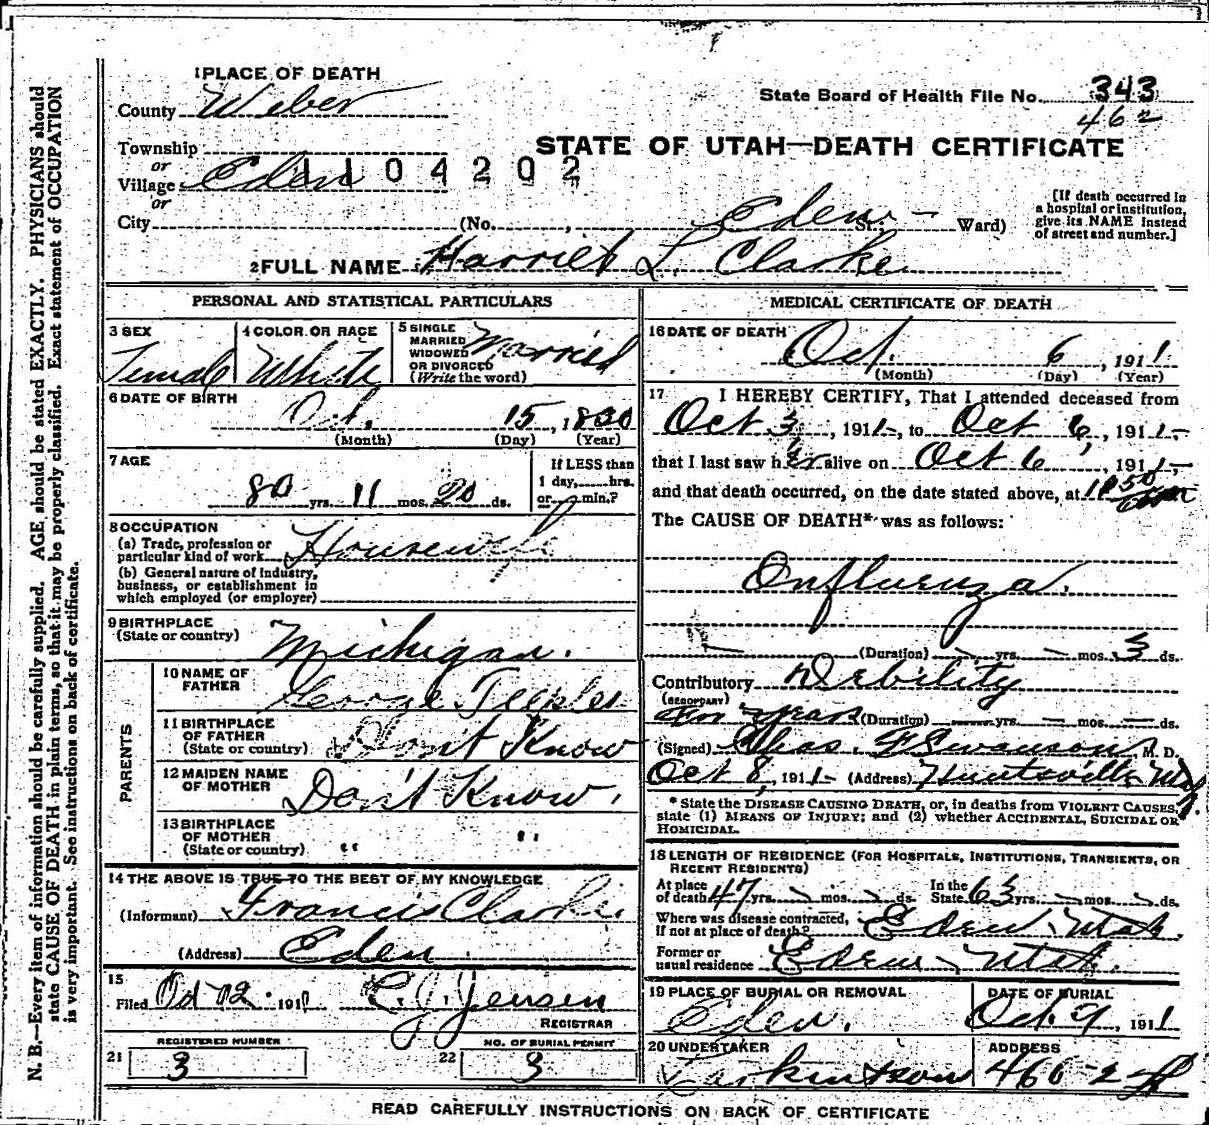 1 PLACE OF DEATH
County Weber
State Board of Health File No. 343
462
Township
or
Village Eden
1104202
or
STATE OF UTAH—DEATH CERTIFICATE
City (No. , Eden St.; Ward)
[If death occurred in a hospital or institution, give its NAME instead of street and number.]
2 FULL NAME Harriet L. Clarke
PERSONAL AND STATISTICAL PARTICULARS
3 SEX
Female
4 COLOR OR RACE
White
5 SINGLE MARRIED WIDOWED OR DIVORCED (Write the word)
Married
6 DATE OF BIRTH
Oct. 15, 1830
(Month) (Day) (Year)
7 AGE
80 yrs. 11 mos. 20 ds.
If LESS than 1 day, hrs. or min.?
8 OCCUPATION
(a) Trade, profession or particular kind of work Housewife
(b) General nature of industry, business, or establishment in which employed (or employer)
9 BIRTHPLACE
(State or country) Michigan.
PARENTS
10 NAME OF FATHER George Teeples
11 BIRTHPLACE OF FATHER (State or country) Don't Know
12 MAIDEN NAME OF MOTHER Don't Know.
13 BIRTHPLACE OF MOTHER (State or country) " "
14 THE ABOVE IS TRUE TO THE BEST OF MY KNOWLEDGE
(Informant) Francis Clarke
(Address) Eden
15
Filed Oct 12 1911 C. J. Jensen
REGISTRAR
REGISTERED NUMBER
21 3
NO. OF BURIAL PERMIT
22 3
MEDICAL CERTIFICATE OF DEATH
16 DATE OF DEATH
Oct. 6, 1911
(Month) (Day) (Year)
17 I HEREBY CERTIFY, That I attended deceased from
Oct 3, 1911-, to Oct 6, 1911-,
that I last saw her alive on Oct 6, 1911-,
and that death occurred, on the date stated above, at
The CAUSE OF DEATH* was as follows:
Influenza.
(Duration) yrs. mos. 3 ds.
Contributory Debility
(SECONDARY)
For years (Duration) yrs. mos. ds.
(Signed) Chas. F Swanson M. D.
Oct 8, 1911- (Address) Huntsville Utah
* State the DISEASE CAUSING DEATH, or, in deaths from VIOLENT CAUSES, state (1) MEANS OF INJURY; and (2) whether ACCIDENTAL, SUICIDAL OR HOMICIDAL.
18 LENGTH OF RESIDENCE (FOR HOSPITALS, INSTITUTIONS, TRANSIENTS, OR RECENT RESIDENTS)
At place of death 47 yrs. mos. ds. In the State 63 yrs. mos. ds.
Where was disease contracted, if not at place of death? Eden Utah.
Former or usual residence Eden Utah.
19 PLACE OF BURIAL OR REMOVAL
Eden.
DATE OF BURIAL
Oct. 9, 1911
20 UNDERTAKER
Larkin & Sons
ADDRESS
466-24
READ CAREFULLY INSTRUCTIONS ON BACK OF CERTIFICATE
N. B.—Every item of information should be carefully supplied. AGE should be stated EXACTLY. PHYSICIANS should
state CAUSE OF DEATH in plain terms, so that it may be properly classified. Exact statement of OCCUPATION
is very important. See instructions on back of certificate.